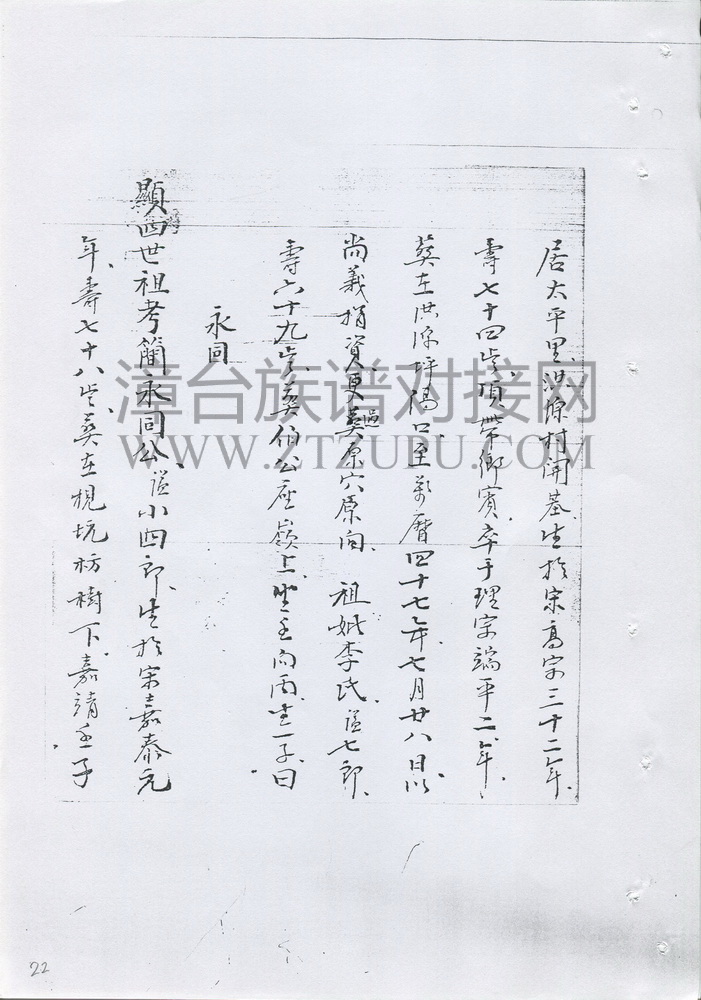 居太平里洪源村開基生於宋高宗三十二年
壽七十四歲項帶鄉賓卒于理宗端平二年
葬在洪源坪隔口至萬曆四十七年七月廿八日以
尚義捐資更葬原穴原向 祖妣李氏諡七郎
壽六十九歲葬伯公座嶺上坐壬向丙生一子曰
永同
顯四世祖考簡永同公諡小四郎生於宋嘉泰元
年壽七十八歲葬在梘坑枋樹下嘉靖壬子
漳台族谱对接网
WWW.ZTZUPU.COM
22